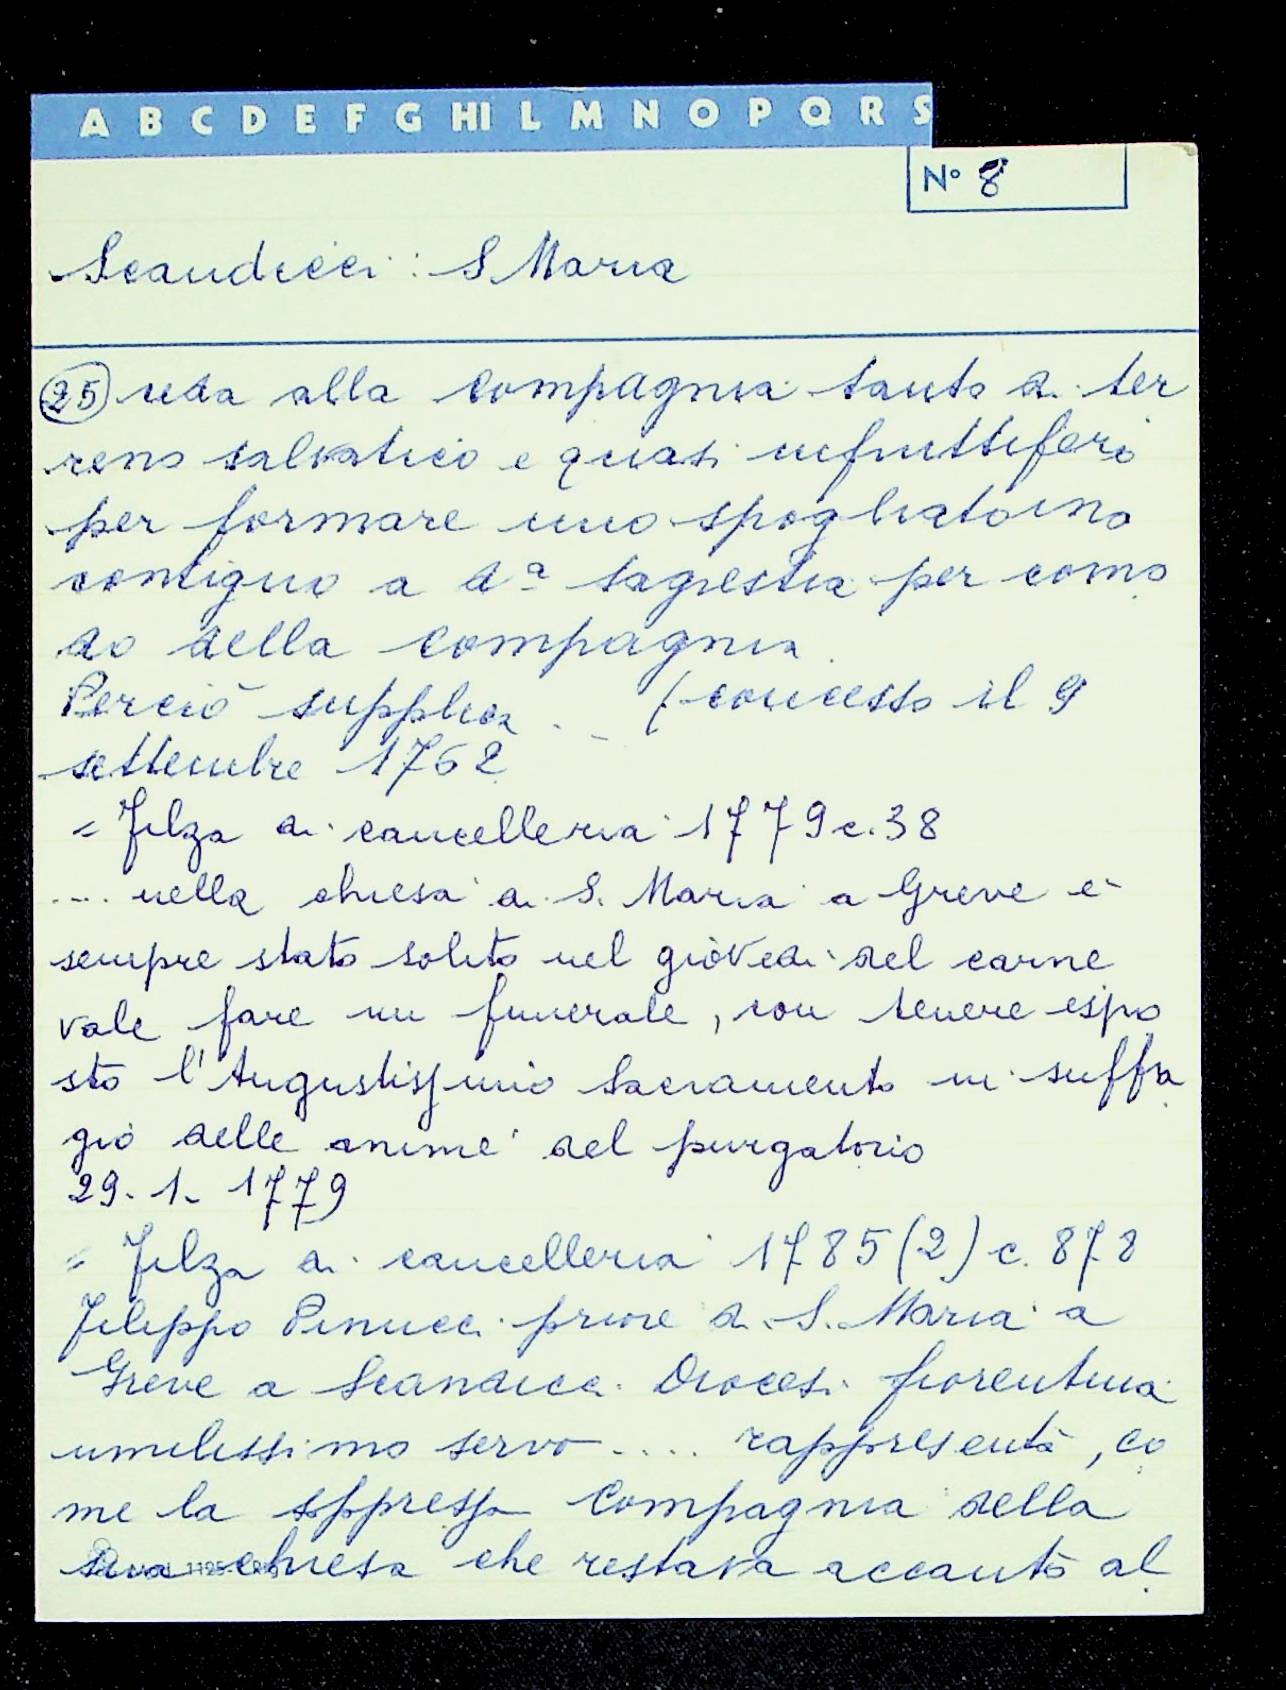 A B C D E F G HI L M N O P Q R S
N° 8
Scandicci: S Maria
25 ceda alla compagnia tanto di ter
reno salvatico e quasi infruttifero
per formare uno spogliatoino
contiguo a d.ª sagrestia per como
do della compagnia.
Perciò supplica . _ (concesso il 9
settembre 1762
= Filza di cancelleria 1779 c. 38
.... nella chiesa di S. Maria a Greve è
sempre stato solito nel giovedi del carne
vale fare un funerale, con tenere espo
sto l'Augustissimo Sacramento in suffra
gio delle anime del purgatorio
29. 1. 1779
= Filza di cancelleria 1785 (2) c. 878
Filippo Pinucci priore di S. Maria a
Greve a Scandicci Diocesi fiorentina
umilissimo servo .... rappresenta, co
me la soppressa Compagnia della
sua chiesa che restava accanto al